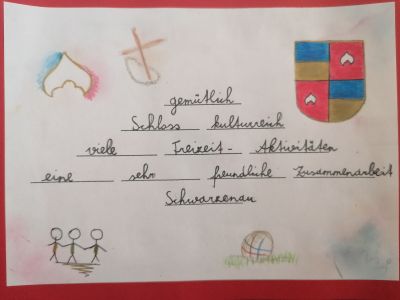 gemütlich
Schloss kulturreich
viele Freizeit- Aktivitäten
eine sehr freundliche Zusammenarbeit
Schwarzenau